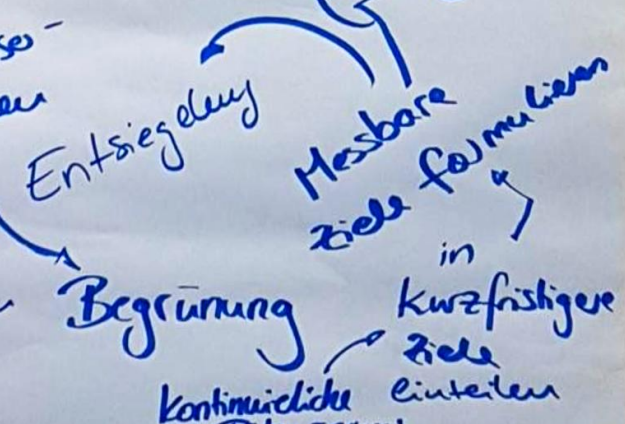 Entsiegelung
Messbare
Ziele formulieren
in
kurzfristigere
Ziele
einteilen
Begrünung
kontinuierliche